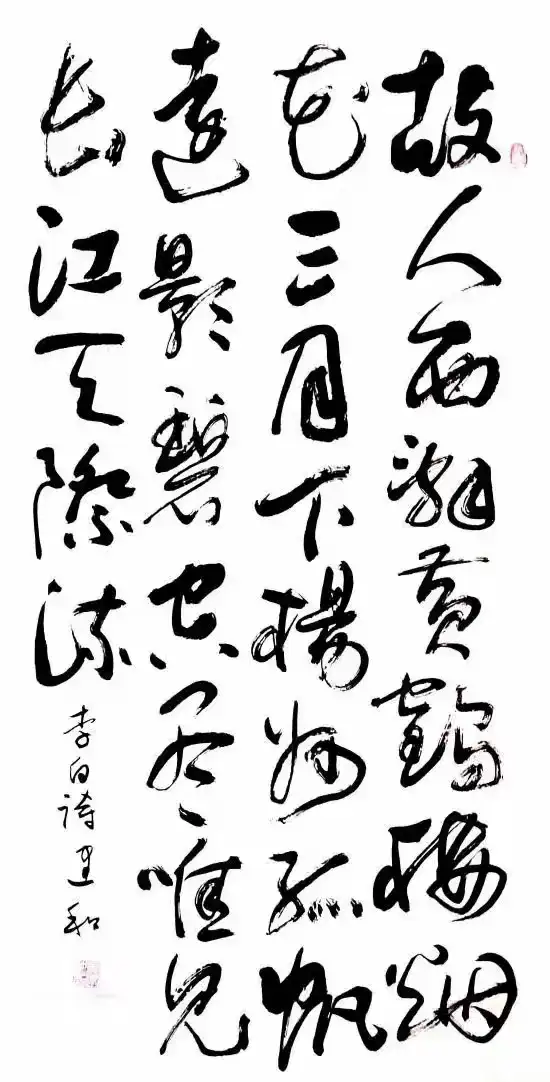 故人西辭黄鶴樓烟
花三月下揚州孤帆
遠影碧空尽唯見
長江天際流
李白詩建和